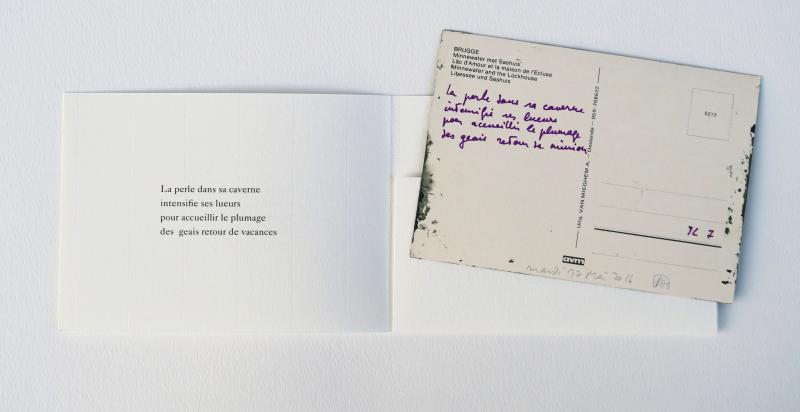 La perle dans sa caverne
intensifie ses lueurs
pour accueillir le plumage
des geais retour de vacances
BRUGGE
Minnewater met Sashuis
Lac d'Amour et la maison de l'Ecluse
Minnewater and the Lockhouse
Liebessee und Sashuis
La perle dans sa caverne
intensifie ses lueurs
pour accueillir le plumage
des geais retour de mission
Uitg. VAN MIEGHEM A. - Oostende - 059-708622
5213
7
avm
mardi 17 Mai 2016